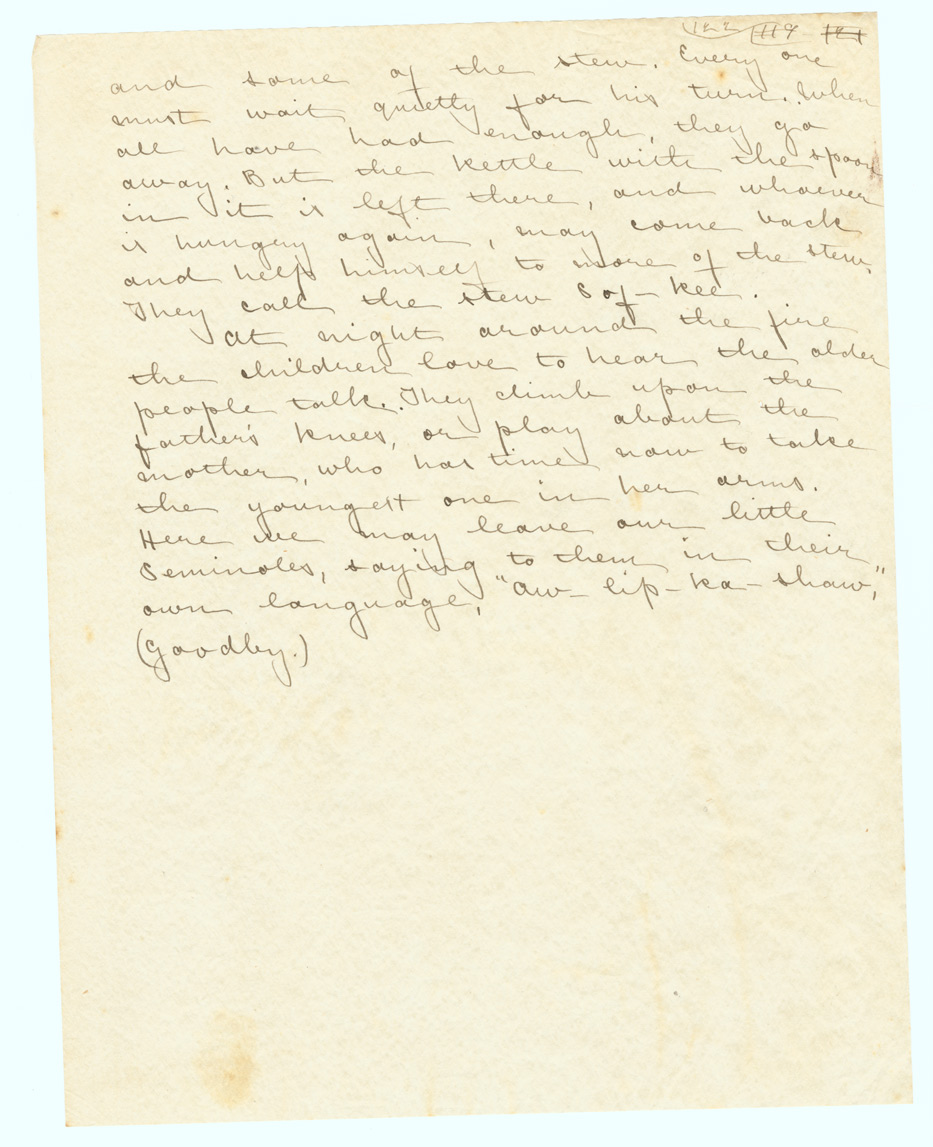 122 119 121
and some of the stew. Every one
must wait quietly for his turn. When
all have had enough, they go
away. But the kettle with the spoon
in it is left there, and whoever
is hungry again, may come back
and help himself to more of the stew.
They call the stew Sof-kee.
At night around the fire
the children love to hear the older
people talk. They climb upon the
father's knees, or play about the
mother, who has time now to take
the youngest one in her arms.
Here we may leave our little
Seminoles, saying to them in their
own language, "aw-lip-ka-shaw,"
(Goodby.)